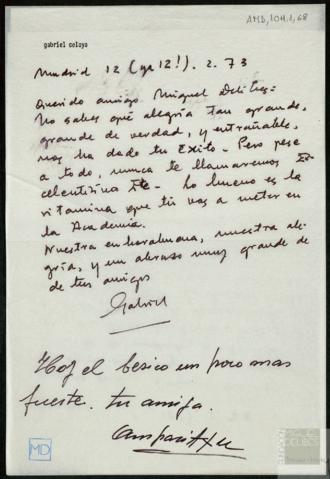 AMD, 104, 1, 68
gabriel celaya
Madrid 12 (ya 12!). 2. 73
Querido amigo Miguel Delibes:
No sabes qué alegría tan grande,
grande de verdad, y entrañable,
nos ha dado tu Exito. Pero pese
a todo, nunca te llamaremos Ex
celentísimo Lo bueno es la
vitamina que tú vas a meter en
la Academia.
Nuestra enhorabuena, nuestra ale
gría, y un abrazo muy grande de
de tus amigos
Gabriel
Hoy el besico un poco mas
fuerte. tu amiga.
Amparitxu
MD
FUNDACIÓN
MIGUEL
DELIBES